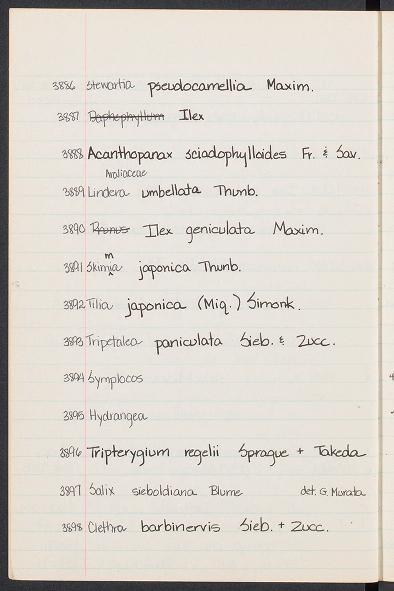 3886 Stewartia pseudocamellia Maxim.
3887 Daphephyllum Ilex
3888 Acanthopanax sciadophylloides Fr. & Sav.
Araliaceae
3889 Lindera umbellata Thunb.
3890 Prunus Ilex geniculata Maxim.
3891 Skimmia japonica Thunb.
3892 Tilia japonica (Miq.) Simonk.
3893 Tripetalea paniculata Sieb. & Zucc.
3894 Symplocos
3895 Hydrangea
3896 Tripterygium regelii Sprague + Takeda
3897 Salix sieboldiana Blume det. G. Murata
3898 Clethra barbinervis Sieb. + Zucc.